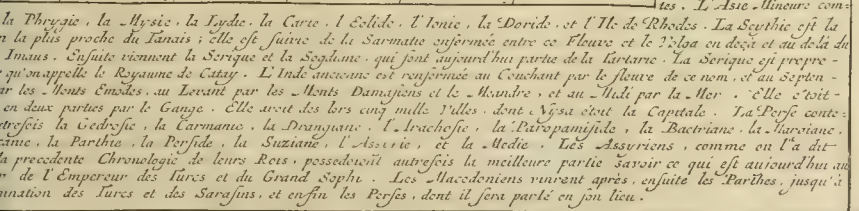 tes. L'Asie Mineure com-
la Phrygie, la Mysie, la Lydie, la Carie, l'Eolide, l'Ionie, la Doride, et l'Ile de Rhodes. La Scythie est la
n la plus proche du Tanais; elle est suivie de la Sarmatie enfermée entre ce Fleuve et le Volga en deça et au delà du
Imaus. Ensuite viennent la Serique et la Sogdiane, qui sont aujourd'hui partie de la Tartarie. La Serique est propre-
qu'on appelle le Royaume de Catay. L'Inde ancienne est renfermée au Couchant par le fleuve de ce nom, et au Septen-
ar les Monts Emodes, au Levant par les Monts Damasiens et le Mæandre, et au Midi par la Mer. Elle étoit
en deux parties par le Gange. Elle avoit des lors cinq mille Villes, dont Nysa étoit la Capitale. La Perse conte-
utrefois la Gedrosie, la Carmanie, la Drangiane, l'Arachosie, la Paropamiside, la Bactriane, la Margiane,
canie, la Parthie, la Perside, la Suziane, l'Assirie, et la Medie. Les Assyriens, comme on l'a dit
a precedente Chronologie de leurs Rois, possedoient autrefois la meilleure partie savoir ce qui est aujourd'hui au
r de l'Empereur des Turcs et du Grand Sophi. Les Macedoniens vinrent après, ensuite les Parthes, jusqu'à
mination des Turcs et des Sarasins, et enfin les Perses, dont il sera parlé en son lieu.